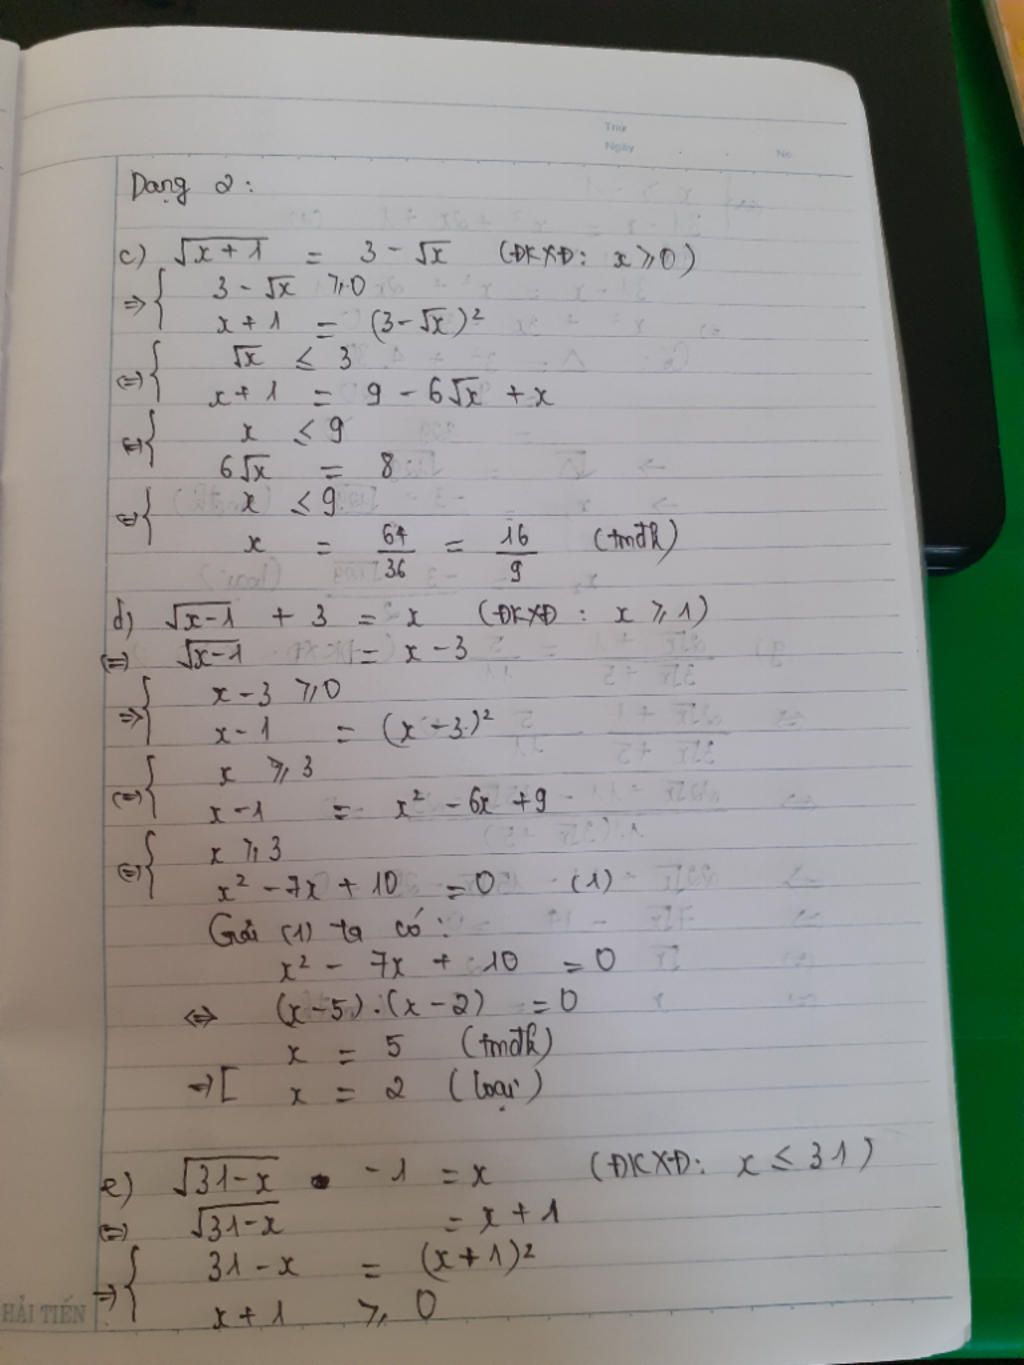 Thứ
Ngày No
Dạng 2:
c) √(x+1) = 3 - √x (ĐKXĐ: x ⩾ 0)
⇒ { 3 - √x ⩾ 0
x + 1 = (3-√x)²
⇔ { √x ≤ 3
x + 1 = 9 - 6√x + x
⇔ { x ≤ 9
6√x = 8
⇔ { x ≤ 9
x = 64/36 = 16/9 (tmđk)
d) √(x-1) + 3 = x (ĐKXĐ: x ⩾ 1)
⇔ √(x-1) = x - 3
⇒ { x - 3 ⩾ 0
x - 1 = (x - 3)²
⇔ { x ⩾ 3
x - 1 = x² - 6x + 9
⇔ { x ⩾ 3
x² - 7x + 10 = 0 (1)
Giải (1) ta có:
x² - 7x + 10 = 0
⇔ (x-5).(x-2) = 0
x = 5 (tmđk)
⇒ [ x = 2 (loại)
e) √(31-x) - 1 = x (ĐKXĐ: x ≤ 31)
⇔ √(31-x) = x + 1
⇒ { 31 - x = (x+1)²
x + 1 ⩾ 0
HẢI TIẾN